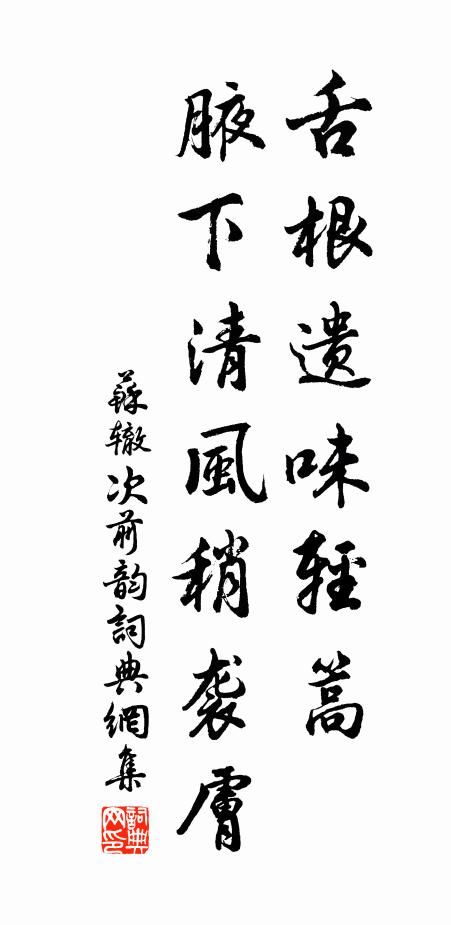 舌根遗味輕篙
腋下清風稍袭膚
蘇辙次前韵詞典網集
詞典
网印